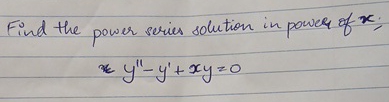 Find the power series solution in power of x;
y'' - y' + xy = 0